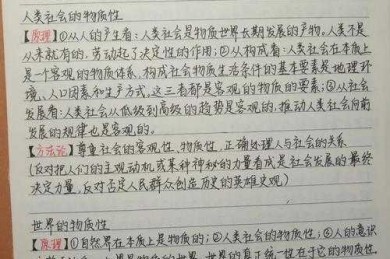 人类社会的物质性
【原理】①从人的产生看:人类社会是物质世界长期发展的产物,人类不是
从来就有的,劳动起了决定性的作用;②从构成看:人类社会在本质上
是一个客观的物质体系,构成社会物质生活条件的基本要素是地理环
境、人口因素和生产方式,这三者都是客观的物质的要素;③从社会
发展看:人类社会从低级到高级的趋势是客观的,推动人类社会向前
发展的规律也是客观的。
【方法论】尊重社会的客观性、物质性,正确处理人与社会的关系
(反对把人们的主观动机或某种神秘的力量看成是社会发展的最终
决定力量,反对否定人民群众创造历史的英雄史观)
世界的物质性
【原理】①自然界在本质上是物质的;②人类社会的物质性;③人的意识
物质的世界,世界的真正统一性在于它的物质性